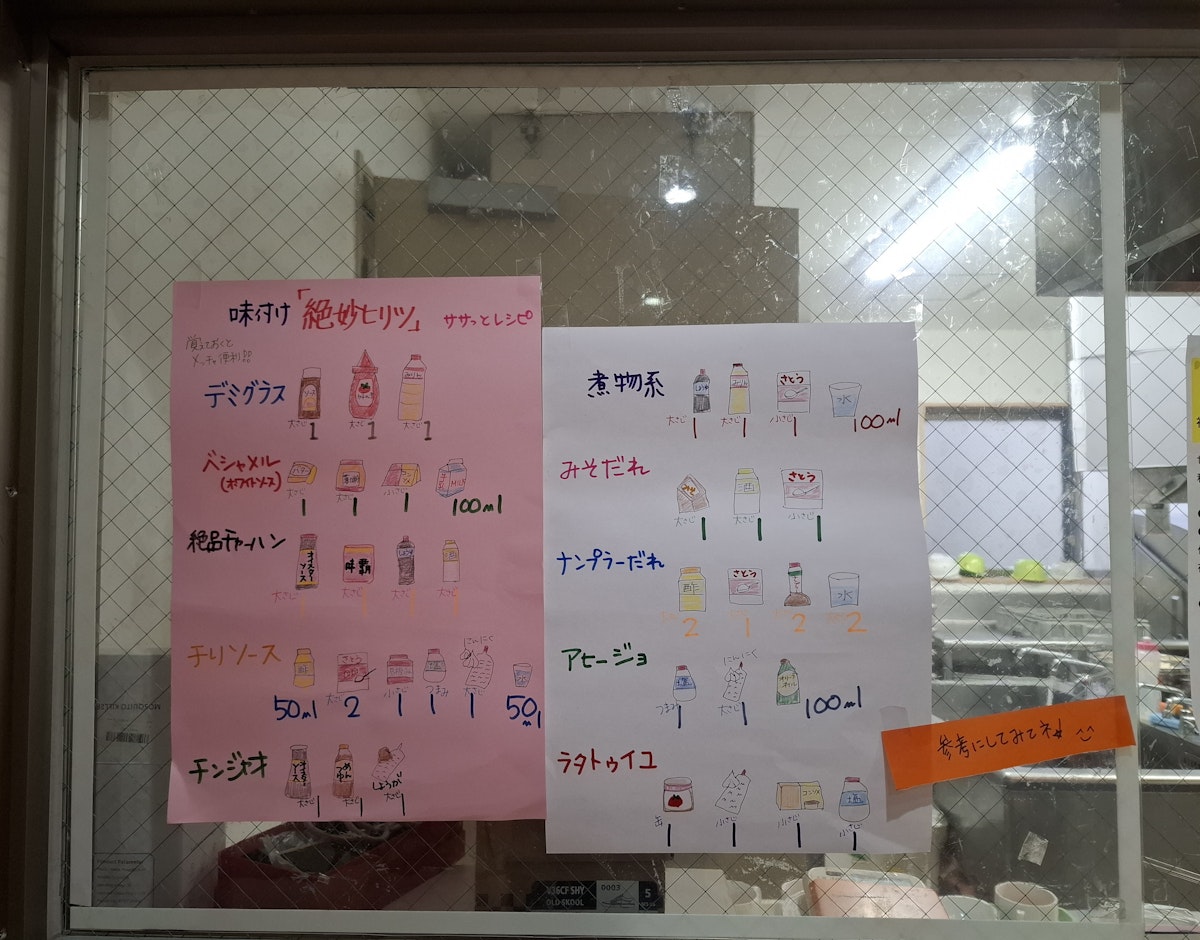 味付け「絶妙ヒリツ」 ササっとレシピ
覚えておくと
メッチャ便利器
デミグラス
ソース みりん
大さじ1 大さじ1 大さじ1
ベシャメル
(ホワイトソース)
バター 薄力粉 コンソメ 牛乳 MILK
大さじ1 大さじ1 小さじ1 100ml
絶品チャーハン
オイスターソース 味覇 しょうゆ 酒
大さじ1 大さじ1 大さじ1 大さじ1
チリソース
酢 さとう 塩 にんにく 水
50ml 大さじ2 小さじ1 つまみ1 大さじ1 50ml
チンジャオ
オイスターソース めんつゆ しょうが
大さじ1 大さじ1 大さじ1
煮物系
しょうゆ みりん さとう 水
大さじ1 大さじ1 小さじ1 100ml
みそだれ
みそ 酒 さとう
大さじ1 大さじ1 小さじ1
ナンプラーだれ
酢 さとう 水
2 1 2 2
アヒージョ
塩 にんにく オリーブオイル
つまみ1 大さじ1 100ml
ラタトゥイユ
コンソメ 塩
缶1 小さじ1 小さじ1 小さじ1
参考にしてみてネ☆
MOSQUITO KILLER
Product Parameter
436CF SHY
OLD SKOOL
0003
5